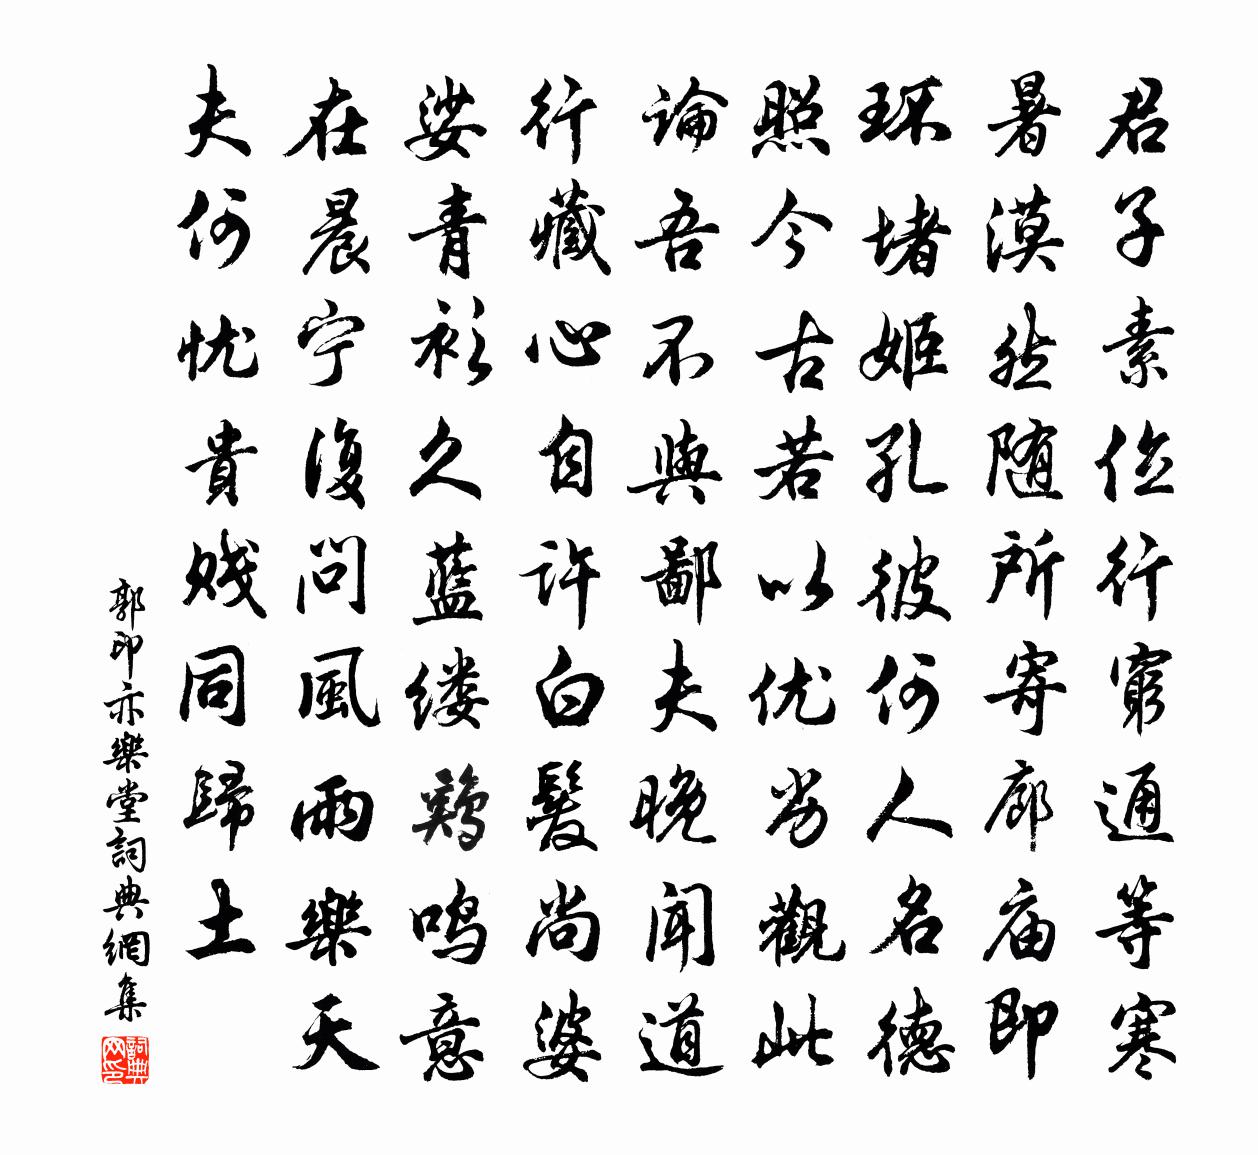 君子素位行窮通等寒
暑漠然随所寄廊庙即
环堵姬孔彼何人名德
照今古若以优劣觀此
論吾不與鄙夫晚聞道
行藏心自许白髮尚婆
娑青衫久藍缕鶏鸣意
在晨宁復问風雨樂天
夫何忧貴贱同歸土
郭印亦樂堂詞典網集
詞典网印